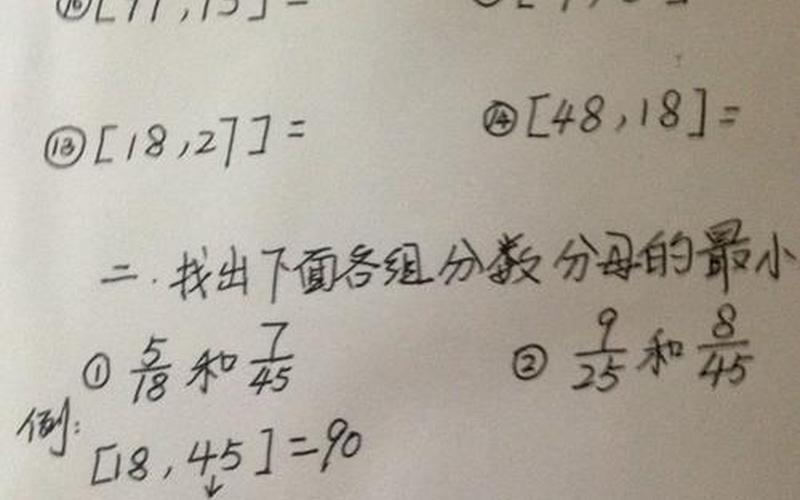 ⑬[18,27]= ⑭[48,18]=
二.找出下面各组分数分母的最小
① 5/18 和 7/45 ② 9/25 和 8/45
例:
[18,45]=90
↓